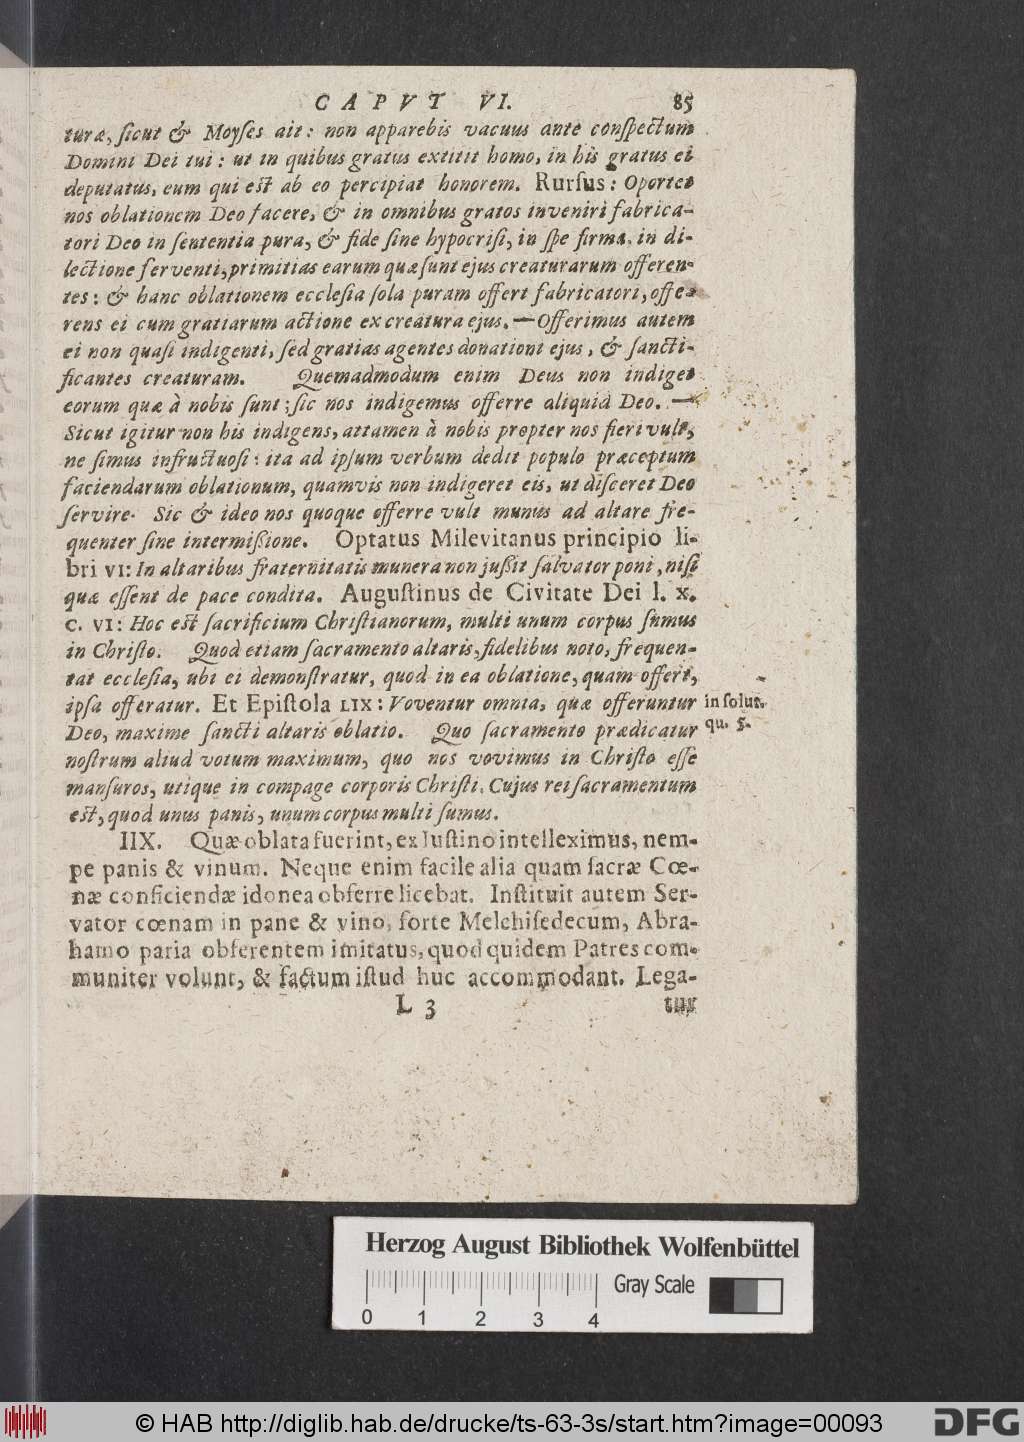 CAPVT VI. 85
turæ, ſicut & Moyſes ait: non apparebis vacuus ante conſpectum
Domini Dei tui: ut in quibus gratus extitit homo, in his gratus ei
deputatus, eum qui eſt ab eo percipiat honorem. Rurſus: Oportet
nos oblationem Deo facere, & in omnibus gratos inveniri fabrica-
tori Deo in ſententia pura, & fide ſine hypocriſi, in ſpe firma, in di-
lectione ferventi, primitias earum quæ ſunt ejus creaturarum offeren-
tes: & hanc oblationem eccleſia ſola puram offert fabricatori, offe-
rens ei cum gratiarum actione ex creatura ejus.—Offerimus autem
ei non quaſi indigenti, ſed gratias agentes donationi ejus, & ſancti-
ficantes creaturam. Quemadmodum enim Deus non indiget
eorum quæ à nobis ſunt; ſic nos indigemus offerre aliquid Deo.—
Sicut igitur non his indigens, attamen à nobis propter nos fieri vult,
ne ſimus infructuoſi: ita ad ipſum verbum dedit populo præceptum
faciendarum oblationum, quamvis non indigeret eis, ut diſceret Deo
ſervire. Sic & ideo nos quoque offerre vult munus ad altare fre-
quenter ſine intermiſſione. Optatus Milevitanus principio li-
bri VI: In altaribus fraternitatis munera non juſſit ſalvator poni, niſi
quæ eſſent de pace condita. Auguſtinus de Civitate Dei l. X.
c. VI: Hoc eſt ſacrificium Chriſtianorum, multi unum corpus ſumus
in Chriſto. Quod etiam ſacramento altaris, fidelibus noto, frequen-
tat eccleſia, ubi ei demonſtratur, quod in ea oblatione, quam offert,
ipſa offeratur. Et Epiſtola LIX: Voventur omnia, quæ offeruntur
in ſolut.
Deo, maxime ſancti altaris oblatio. Quo ſacramento prædicatur
qu. 5.
noſtrum aliud votum maximum, quo nos vovimus in Chriſto eſſe
manſuros, utique in compage corporis Chriſti. Cujus rei ſacramentum
eſt, quod unus panis, unum corpus multi ſumus.
IIX. Quæ oblata fuerint, ex Juſtino intelleximus, nem-
pe panis & vinum. Neque enim facile alia quam ſacræ Cœ-
næ conficiendæ idonea obferre licebat. Inſtituit autem Ser-
vator cœnam in pane & vino, forte Melchiſedecum, Abra-
hamo paria obferentem imitatus, quod quidem Patres com-
muniter volunt, & factum iſtud huc accommodant. Lega-
L 3 tur
Herzog August Bibliothek Wolfenbüttel
Gray Scale
0 1 2 3 4
© HAB http://diglib.hab.de/drucke/ts-63-3s/start.htm?image=00093 DFG